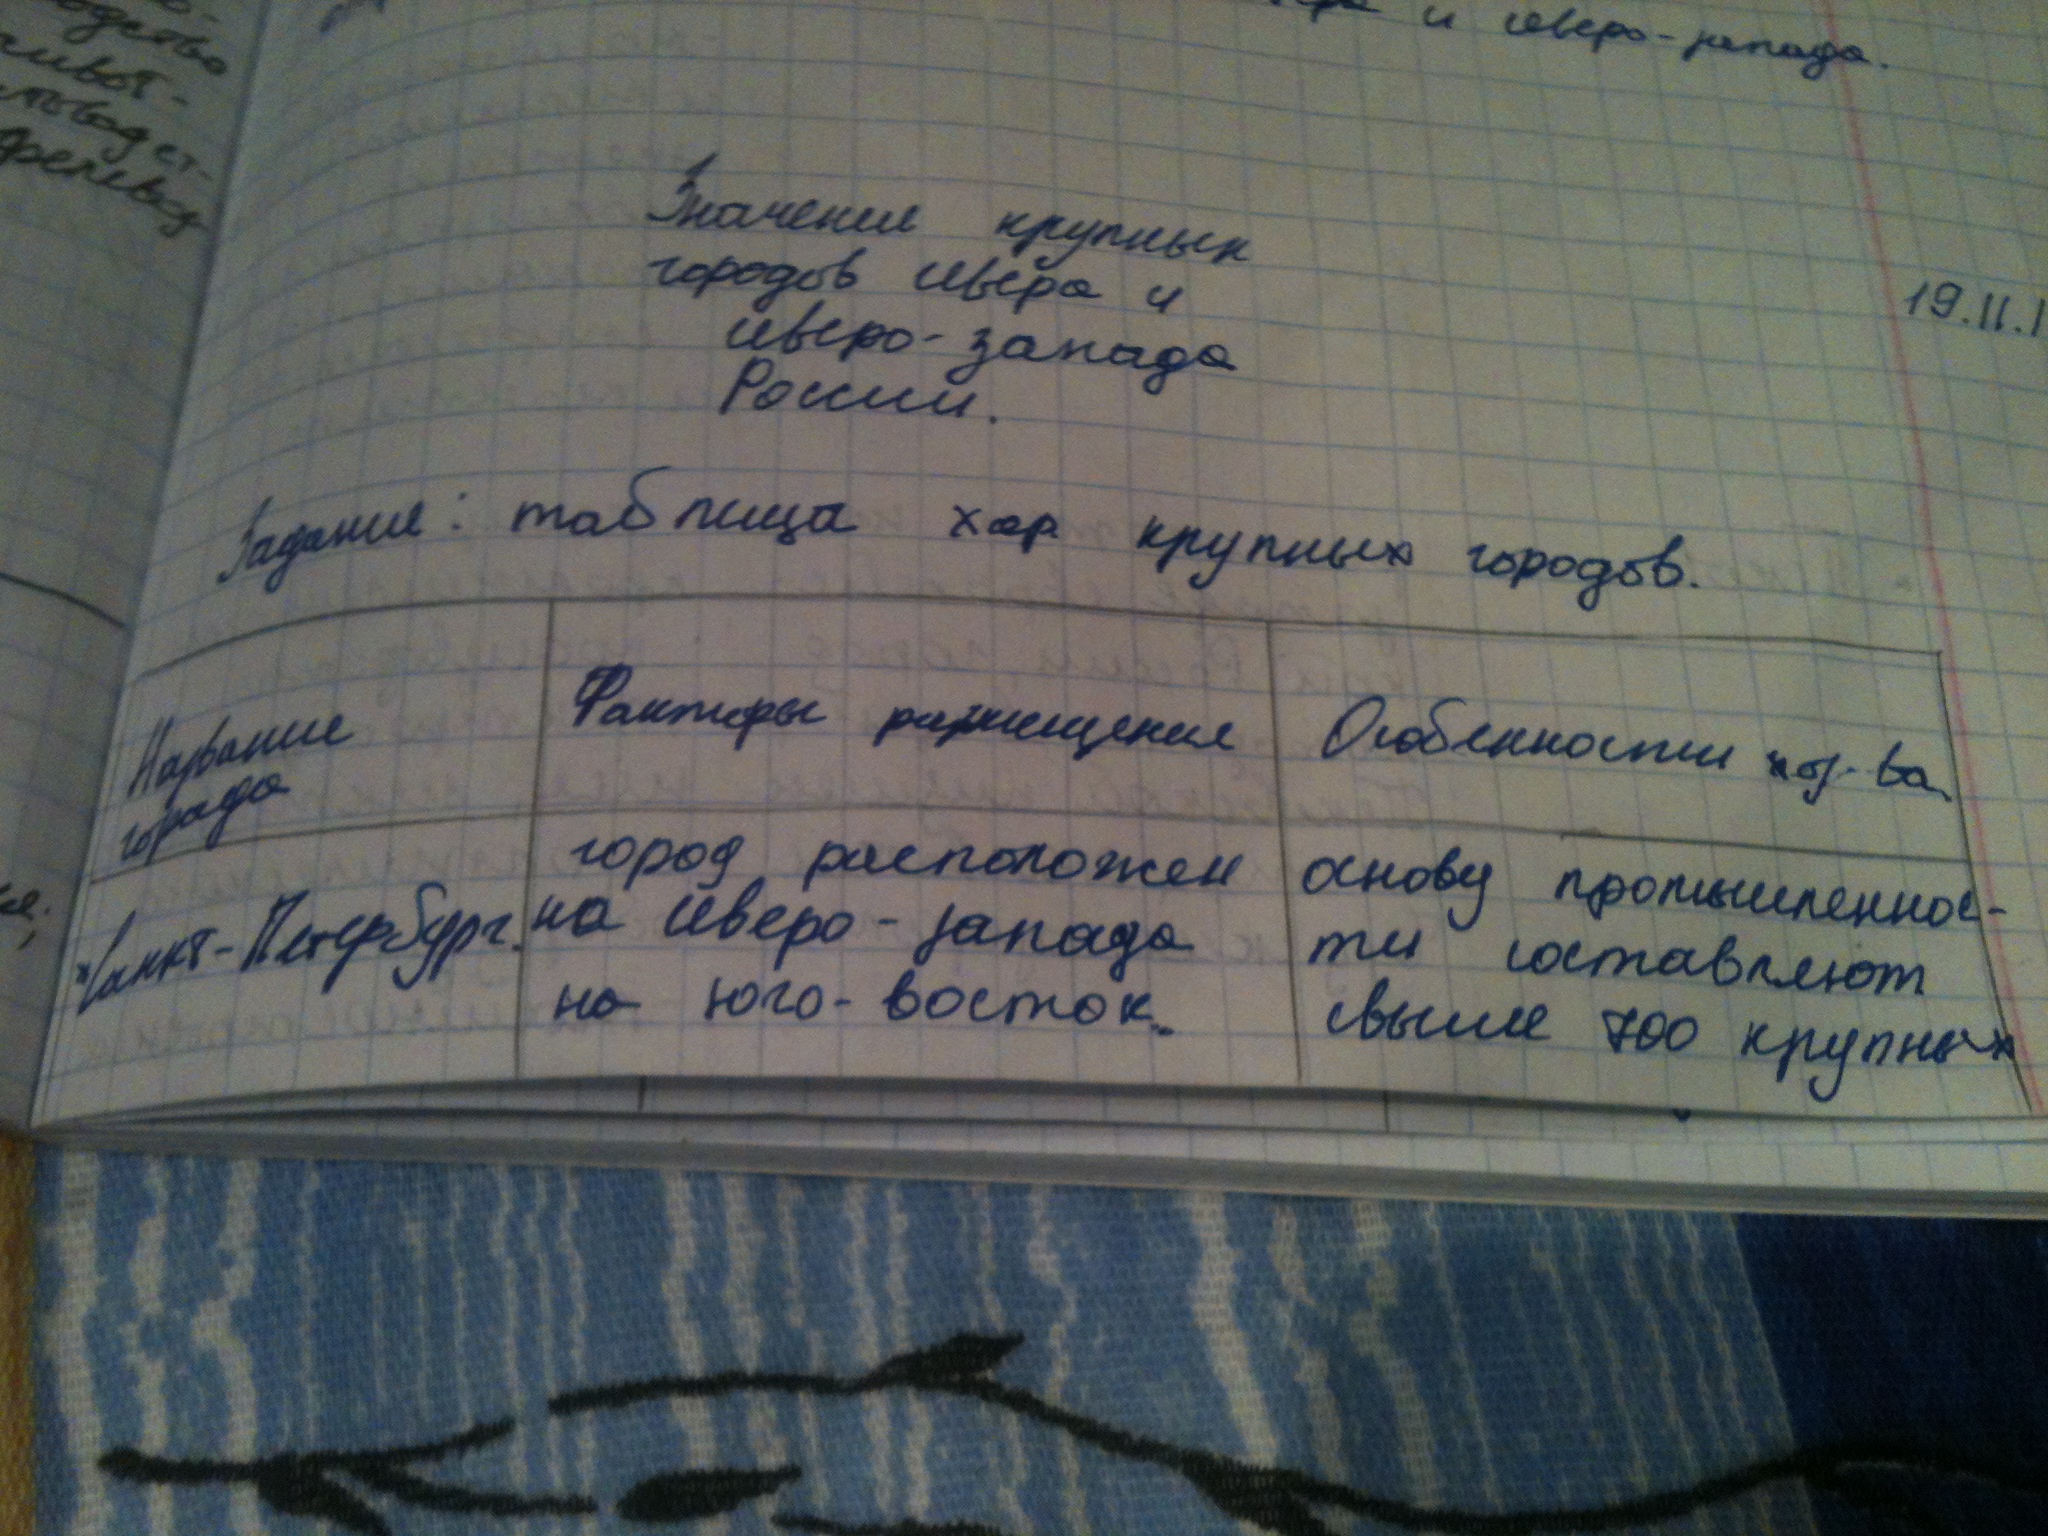 и северо-запада.
Значение крупных
городов севера и
северо-запада
России.
19.11.1
Задание: таблица хар. крупных городов.
Название
города
Факторы размещения
Особенности хоз-ва.
Санкт-Петербург.
город расположен
на северо-запада
на юго-восток.
основу промышленнос-
ти составляют
свыше 700 крупных